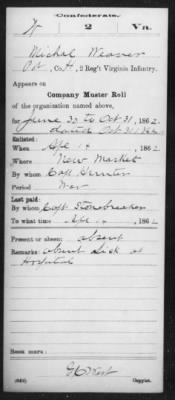 Confederate.
W 2 Va.
Michal Weaver
Pvt, Co. H, 2 Reg't Virginia Infantry.
Appears on
Company Muster Roll
of the organization named above,
for June 30 to Oct 31, 186 2.
dated Oct 31, 1862
Enlisted:
When Apl 14, 186 2.
Where New Market
By whom Capt Hunter
Period War
Last paid:
By whom Capt Stonebreaker
To what time Apl 186
Present or absent: absent
Remarks: absent Sick at
Hospital
Book mark:
(642) Copyist.